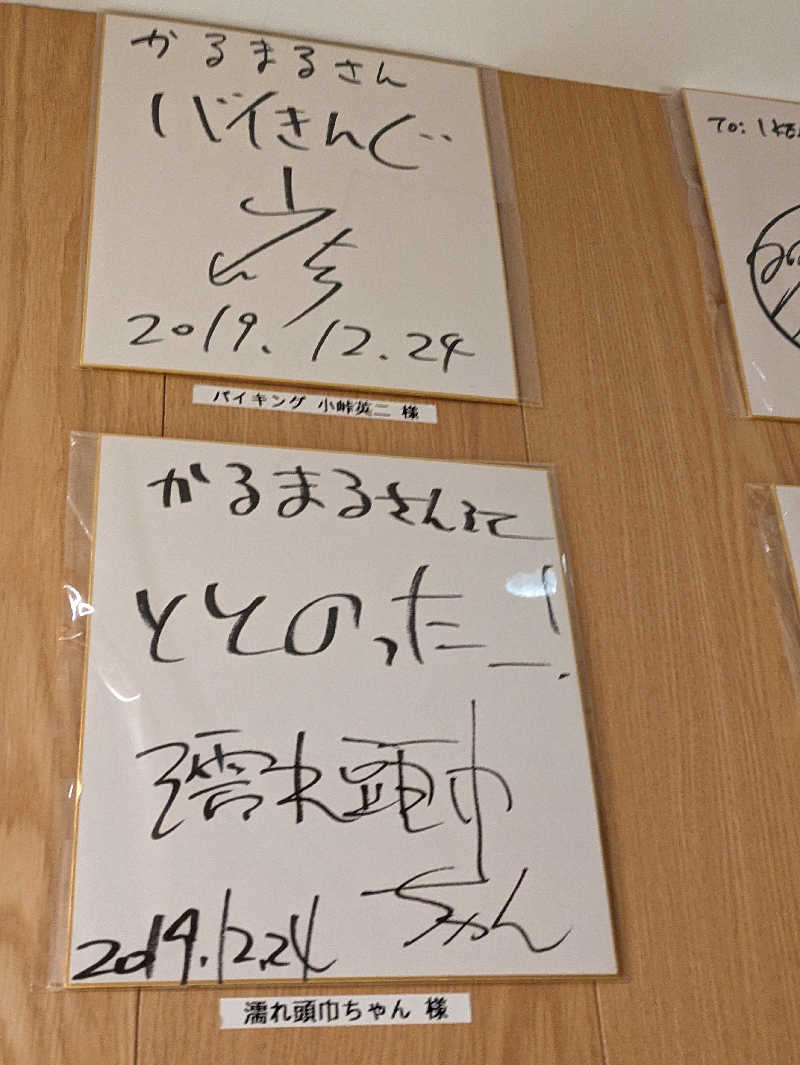 かるまるさん
バイきんぐ
2019.12.24
バイキング 小峠英二 様
かるまるさんで
ととのったー!
濡れ頭巾
ちゃん
2019.12.24
濡れ頭巾ちゃん 様
To: